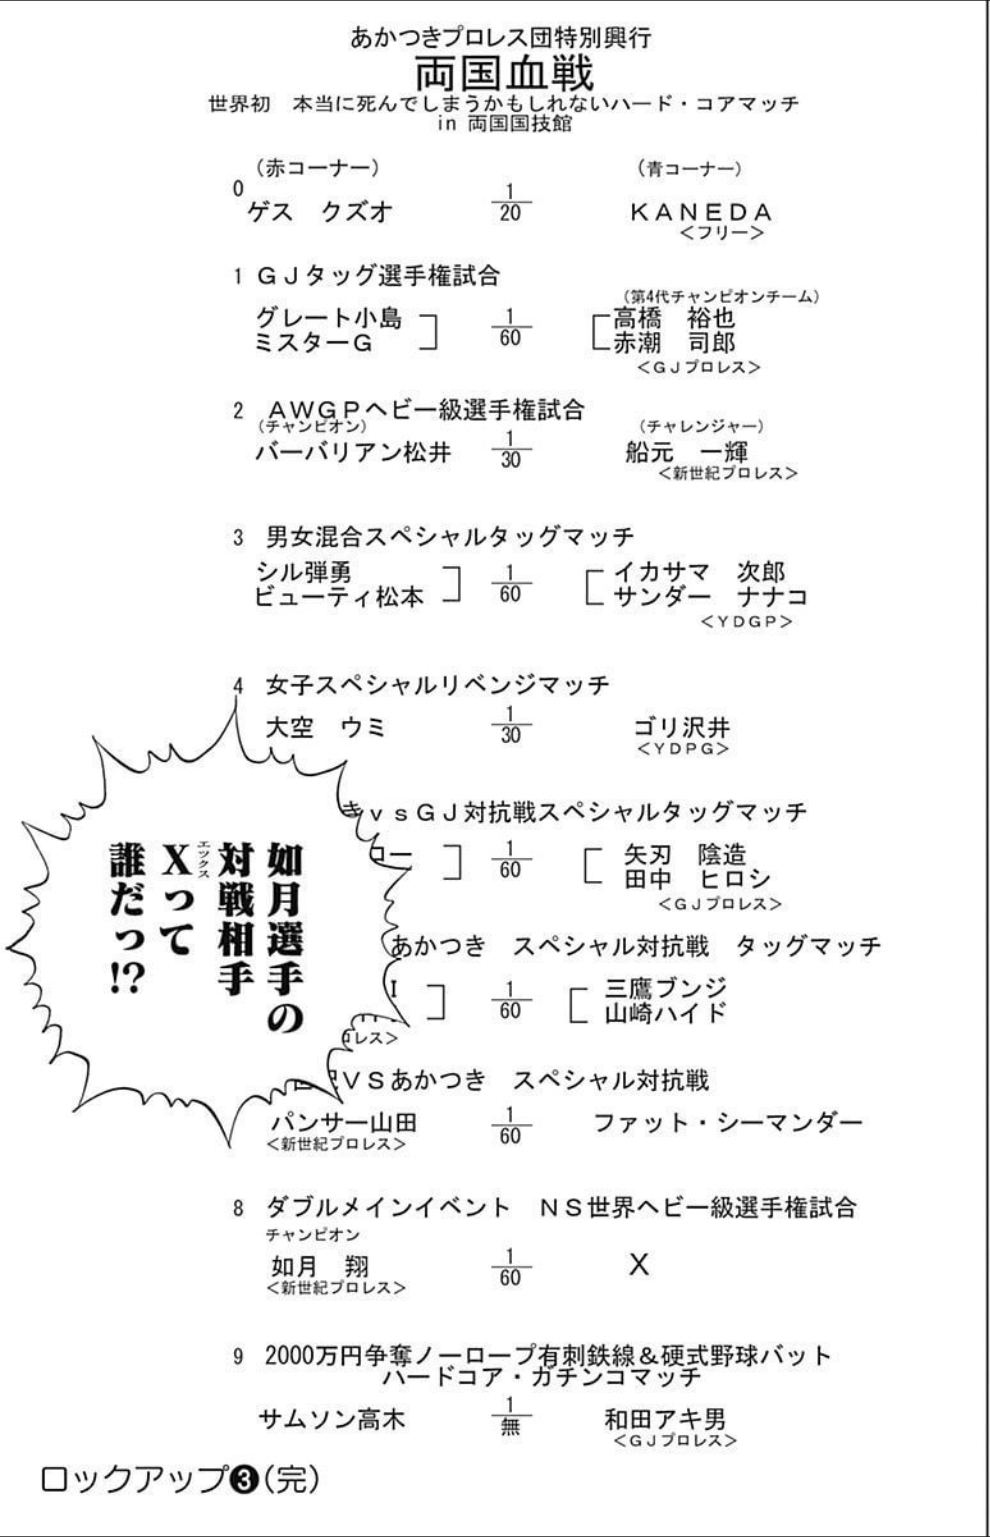 あかつきプロレス団特別興行
両国血戦
世界初　本当に死んでしまうかもしれないハード・コアマッチ
in 両国国技館
（赤コーナー）　（青コーナー）
0
ゲス　クズオ　1/20　ＫＡＮＥＤＡ
＜フリー＞
1 ＧＪタッグ選手権試合
（第4代チャンピオンチーム）
グレート小島　1/60　高橋　裕也
ミスターＧ　赤潮　司郎
＜ＧＪプロレス＞
2 ＡＷＧＰヘビー級選手権試合
（チャンピオン）　（チャレンジャー）
バーバリアン松井　1/30　船元　一輝
＜新世紀プロレス＞
3 男女混合スペシャルタッグマッチ
シル弾勇　1/60　イカサマ　次郎
ビューティ松本　サンダー　ナナコ
＜ＹＤＧＰ＞
4 女子スペシャルリベンジマッチ
大空　ウミ　1/30　ゴリ沢井
＜ＹＤＰＧ＞
きｖｓＧＪ対抗戦スペシャルタッグマッチ
ロー　1/60　矢刃　陰造
田中　ヒロシ
＜ＧＪプロレス＞
如月選手の
対戦相手
Xエックスって
誰だっ!?
あかつき　スペシャル対抗戦　タッグマッチ
Ｉ　1/60　三鷹ブンジ
山崎ハイド
レス＞
ＶＳあかつき　スペシャル対抗戦
パンサー山田　1/60　ファット・シーマンダー
＜新世紀プロレス＞
8 ダブルメインイベント　ＮＳ世界ヘビー級選手権試合
チャンピオン
如月　翔　1/60　Ｘ
＜新世紀プロレス＞
9 2000万円争奪ノーロープ有刺鉄線＆硬式野球バット
ハードコア・ガチンコマッチ
サムソン高木　1/無　和田アキ男
＜ＧＪプロレス＞
ロックアップ❸（完）